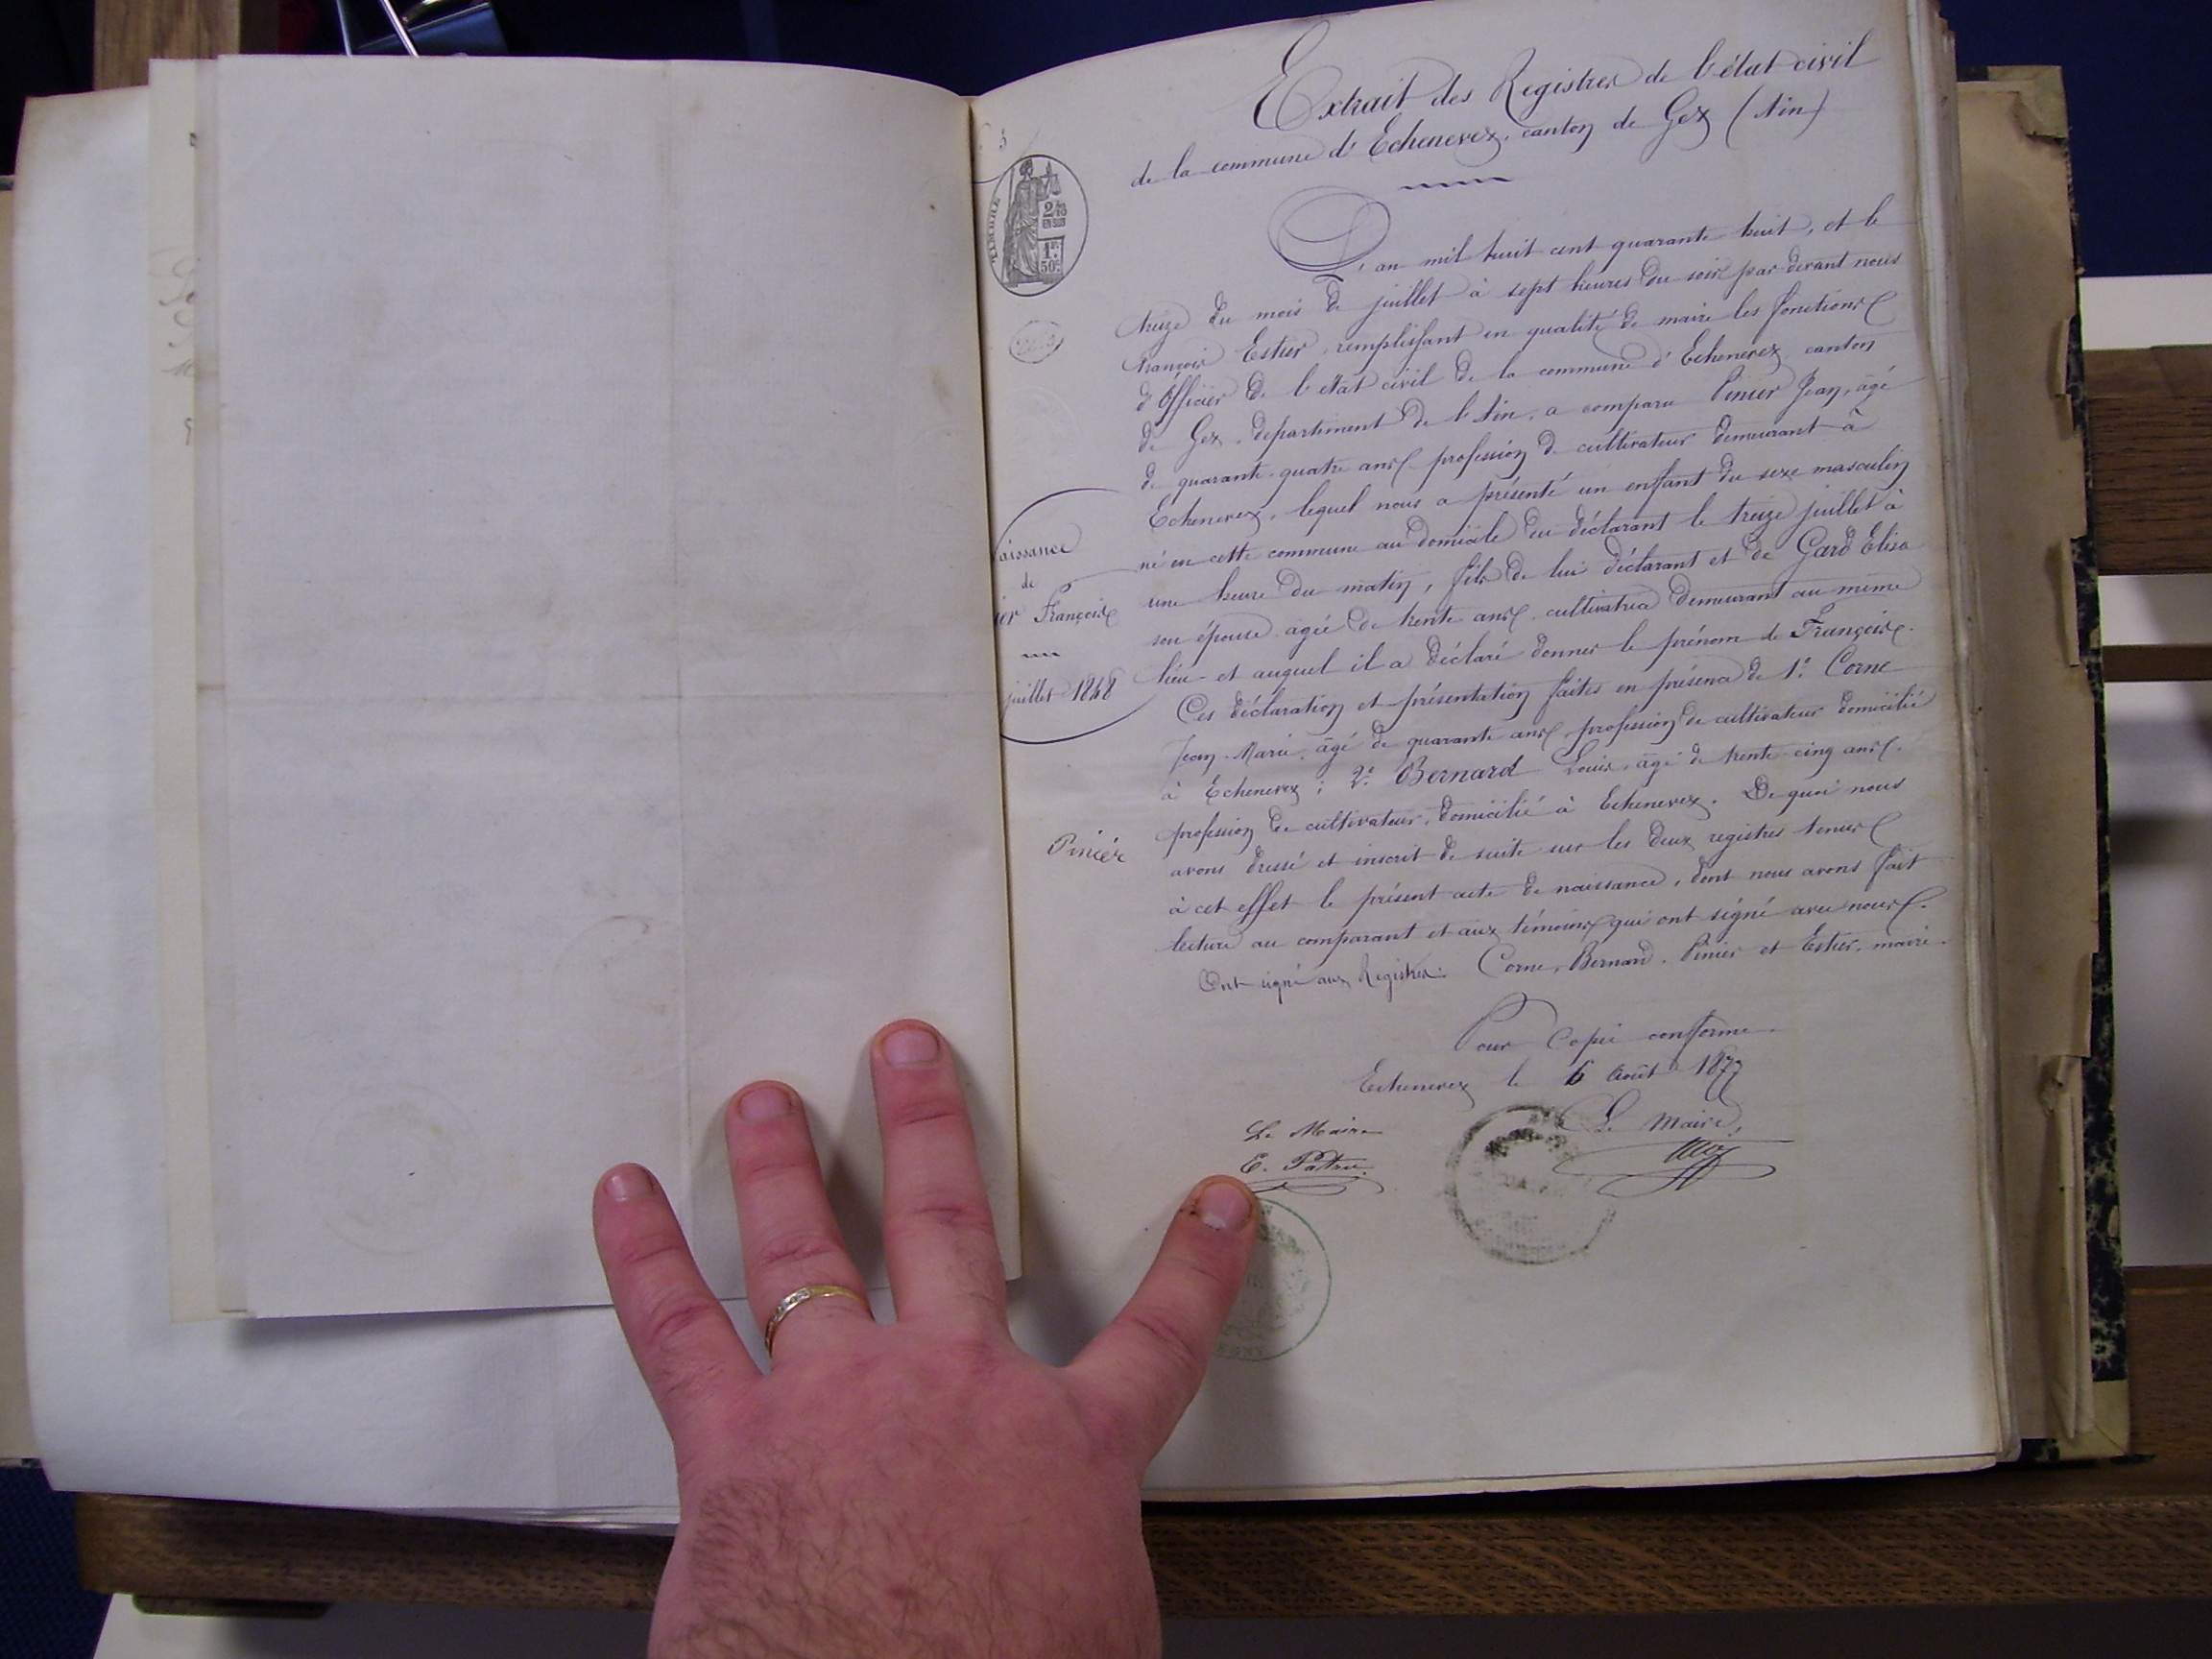 Extrait des Registres de l'état civil
de la commune d'Echenevex, canton de Gex (Ain)
TIMBRE
2/10
EN SUS
1F.
50c.
L'an mil huit cent quarante huit, et le
treize du mois de juillet à sept heures du soir par devant nous
François Estier, remplissant en qualité de maire les fonctions
d'Officier de l'état civil de la commune d'Echenevex, canton
de Gex, departement de l'Ain, a comparu Pinier Jean, âgé
de quarante-quatre ans, profession de cultivateur demeurant à
Echenevex, lequel nous a présenté un enfant du sexe masculin
né en cette commune au domicile du déclarant le treize juillet à
une heure du matin, fils de lui déclarant et de Gard Elisa
son épouse agée de trente ans, cultivatrice demeurant au même
lieu et auquel il a déclaré donner le prénom de François.
Ces déclaration et présentation faites en présence de 1° Corne
Jean-Marie, âgé de quarante ans, profession de cultivateur domicilié
à Echenevex; 2° Bernard Louis, âgé de trente-cinq ans,
profession de cultivateur, domicilié à Echenevex. De quoi nous
avons dressé et inscrit de suite sur les deux registres tenus
à cet effet le présent acte de naissance, dont nous avons fait
lecture au comparant et aux témoins qui ont signé avec nous.
Ont signé aux Registres: Corne, Bernard, Pinier et Estier, maire.
aissance
de
ier François
juillet 1848
Pinier
Pour Copie conforme.
Echenevex le 6 Août 1877
Le Maire,
Le Maire
E. Patru